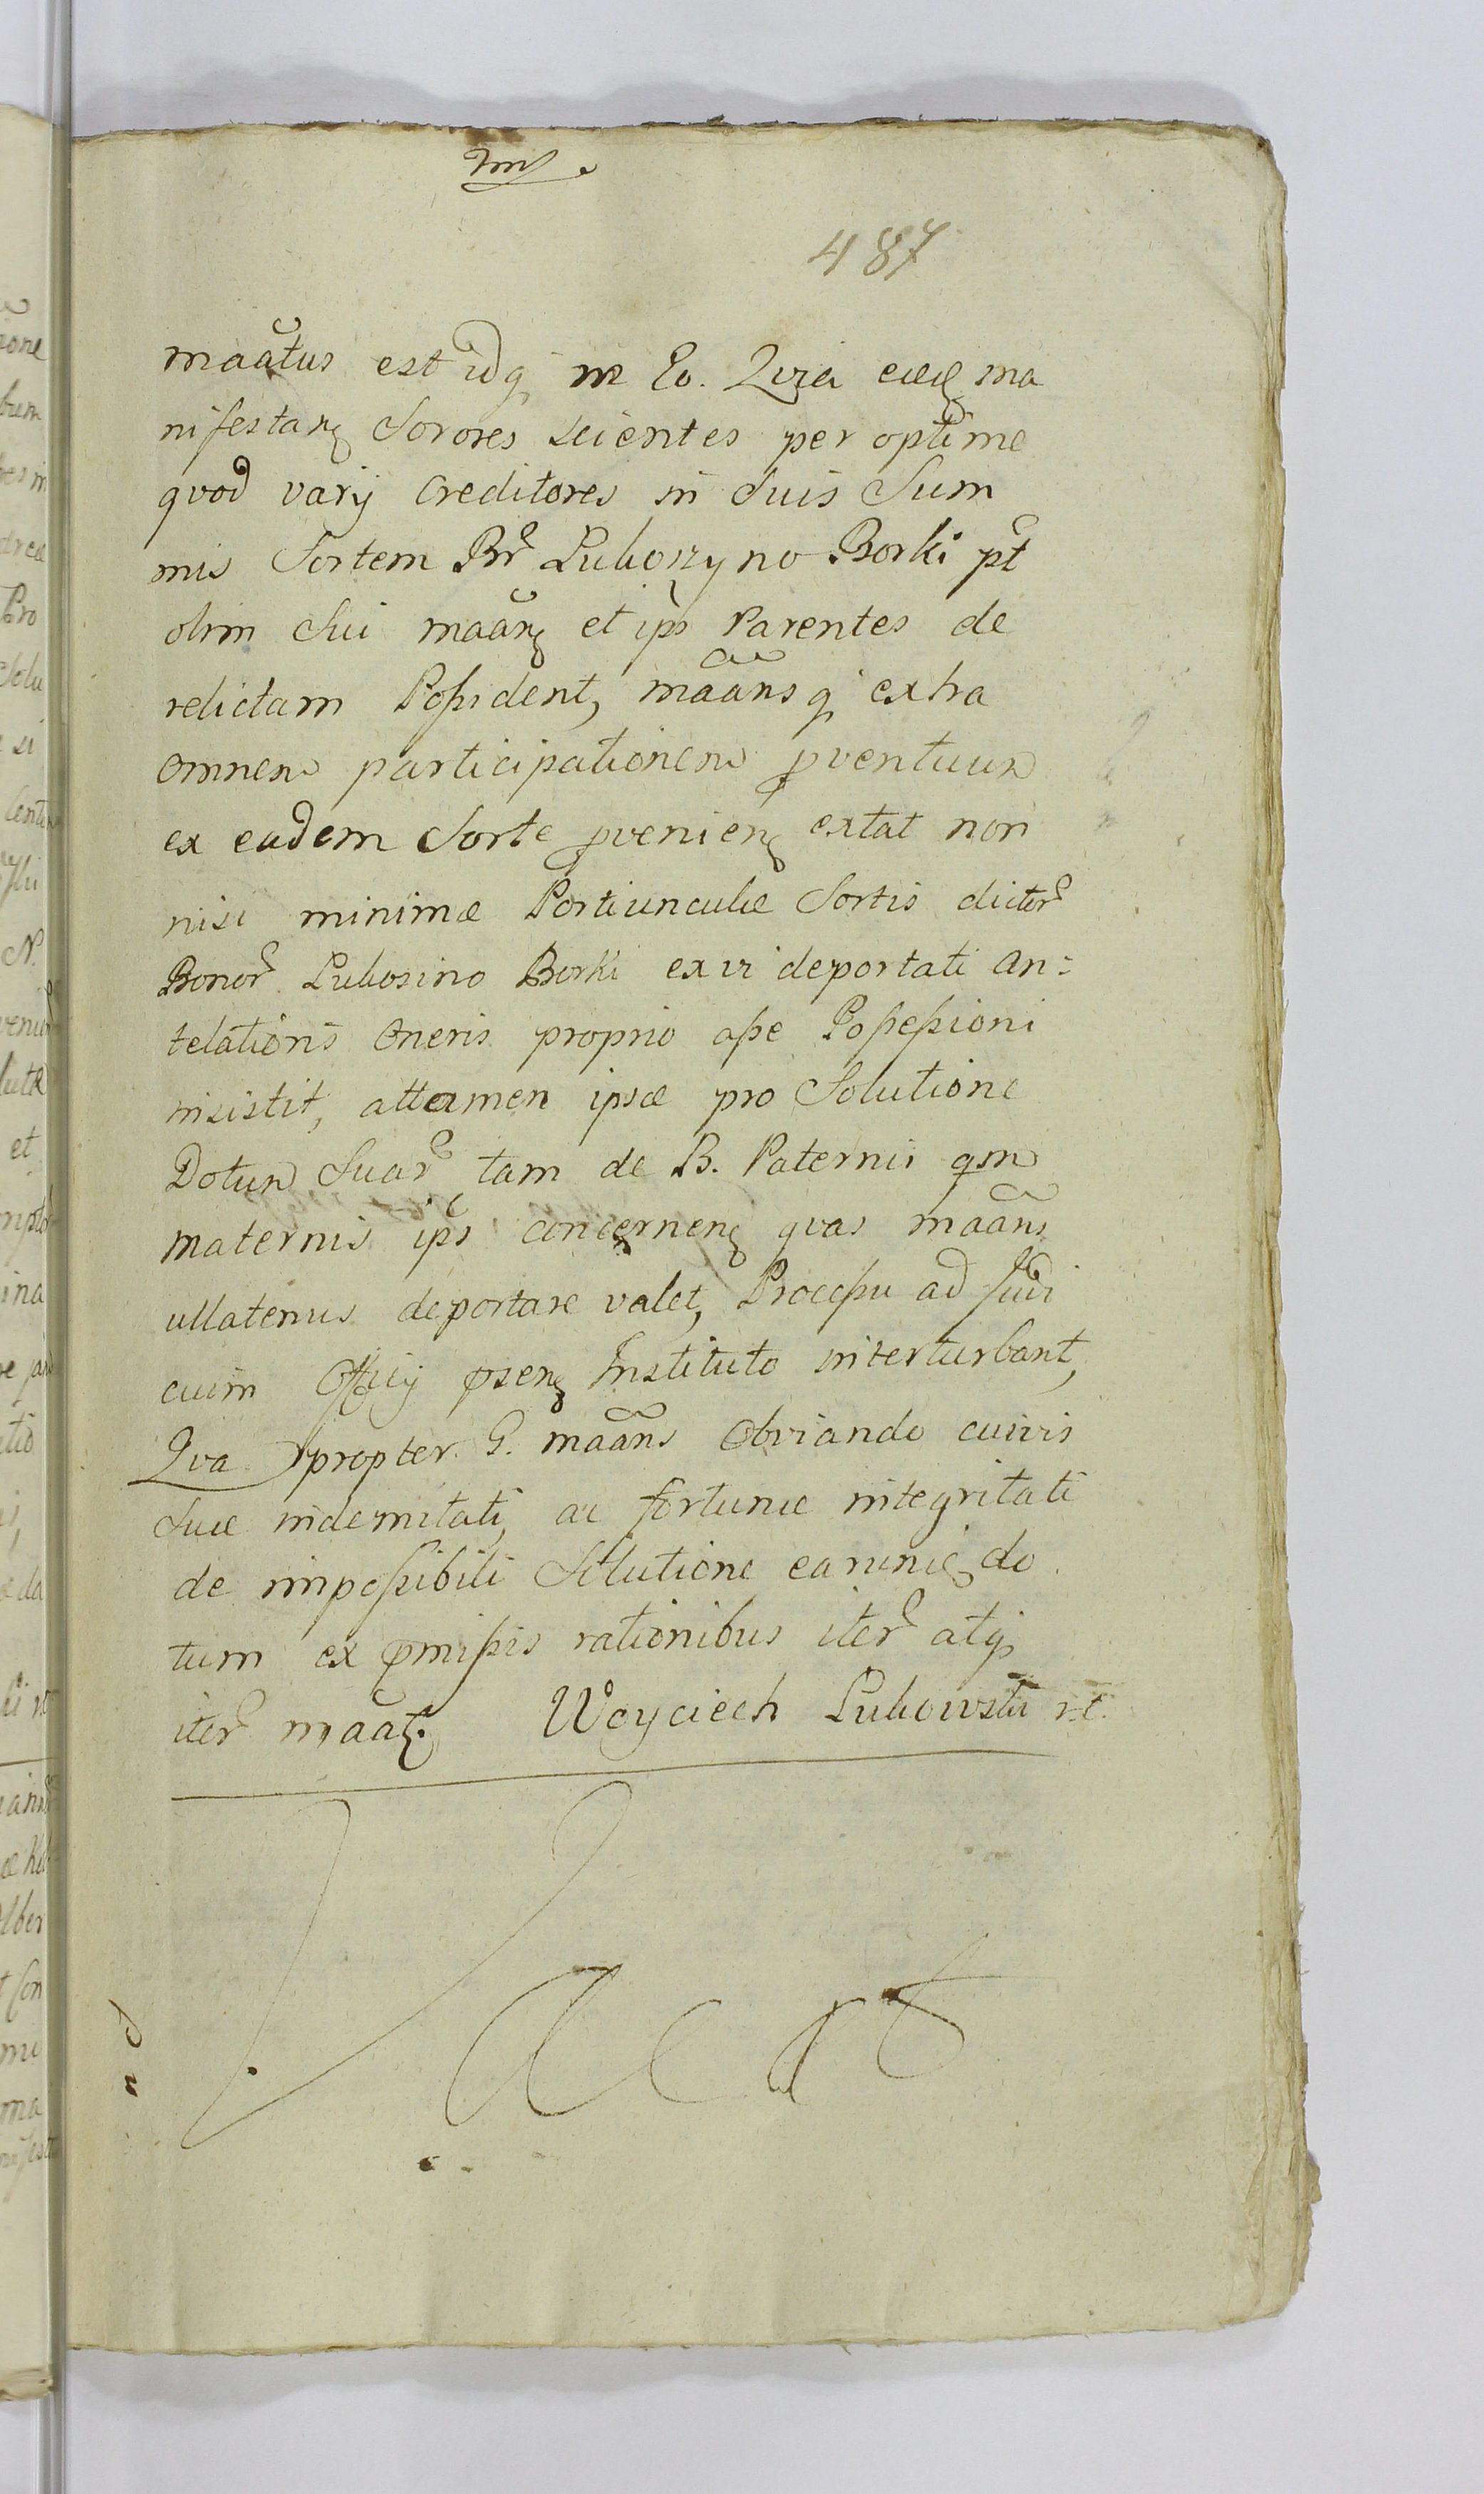 487
maatus est idq in Eo. Quia eaed ma
nifestan Sorores scientes per optime
qvod varij Creditores in Suis Sum
mis Sortem Br Luboszyno Borki pt
olim Sui maan et ips Parentes de
relictam Possident, maansq extra
omnem participationem pventuum
ex eadem Sorte pvenien extat non
nisi minimæ Portiunculæ Sortis dictor
Bonor Lubosino Borki ex vi deportati an=
telationis Oneris proprio asse Possessioni
insistit, attamen ipsæ pro Solutione
Dotum Suar tam de B. Paternis qm
maternis ips concernen qvas maans
ullatenus deportare valet, Processu ad Judi
cium Officij psen Instituto interturbant,
Qva propter G. maans Obviando cuivis
Suæ indemnitati, ac fortunæ integritati
de impossibili Solutione earum do
tum ex pmissis rationibus iter atq
iter maat. Woyciech Lubowski
Vacat